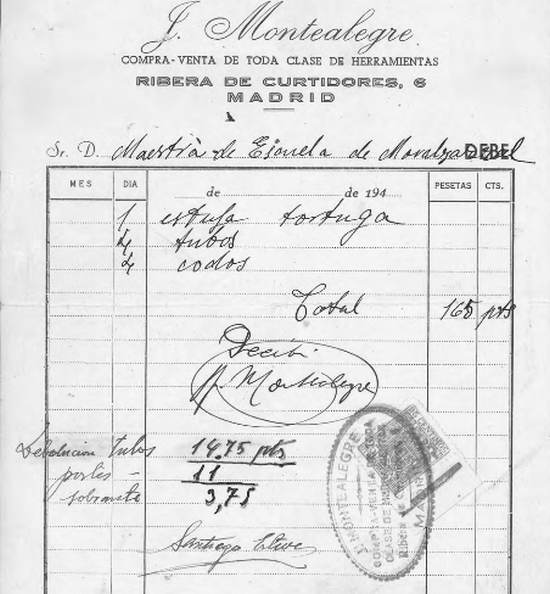 J. Montealegre
COMPRA-VENTA DE TODA CLASE DE HERRAMIENTAS
RIBERA DE CURTIDORES, 6
MADRID
Sr. D. Maestra de Escuela de DEBE
MES DIA de de 194 PESETAS CTS.
1 estufa tortuga
4 tubos
4 codos
Total 165 pts
Recibi
J. Montealegre
Debolucion tubos 14,75 pts
portes 11
sobrante 3,75
Santiago
J. MONTEALEGRE
COMPRA-VENTA DE TODA
CLASE DE
MADRID